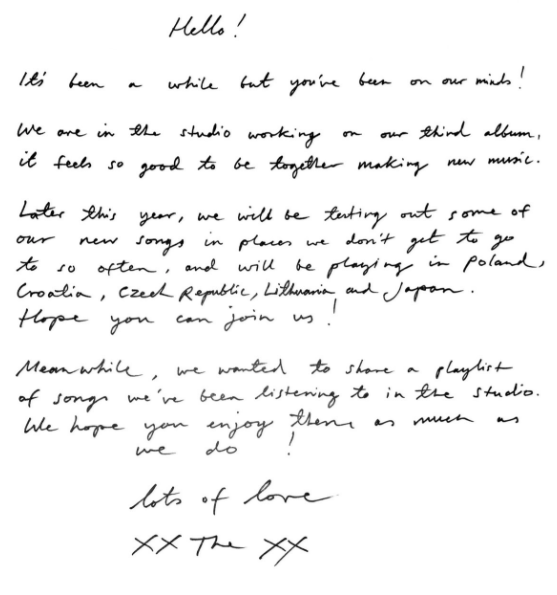 Hello!
It's been a while but you've been on our minds!
We are in the studio working on our third album,
it feels so good to be together making new music.
Later this year, we will be testing out some of
our new songs in places we don't get to go
to so often, and will be playing in Poland,
Croatia, Czech Republic, Lithuania and Japan.
Hope you can join us!
Meanwhile, we wanted to share a playlist
of songs we've been listening to in the studio.
We hope you enjoy them as much as
we do !
lots of love
XX The XX